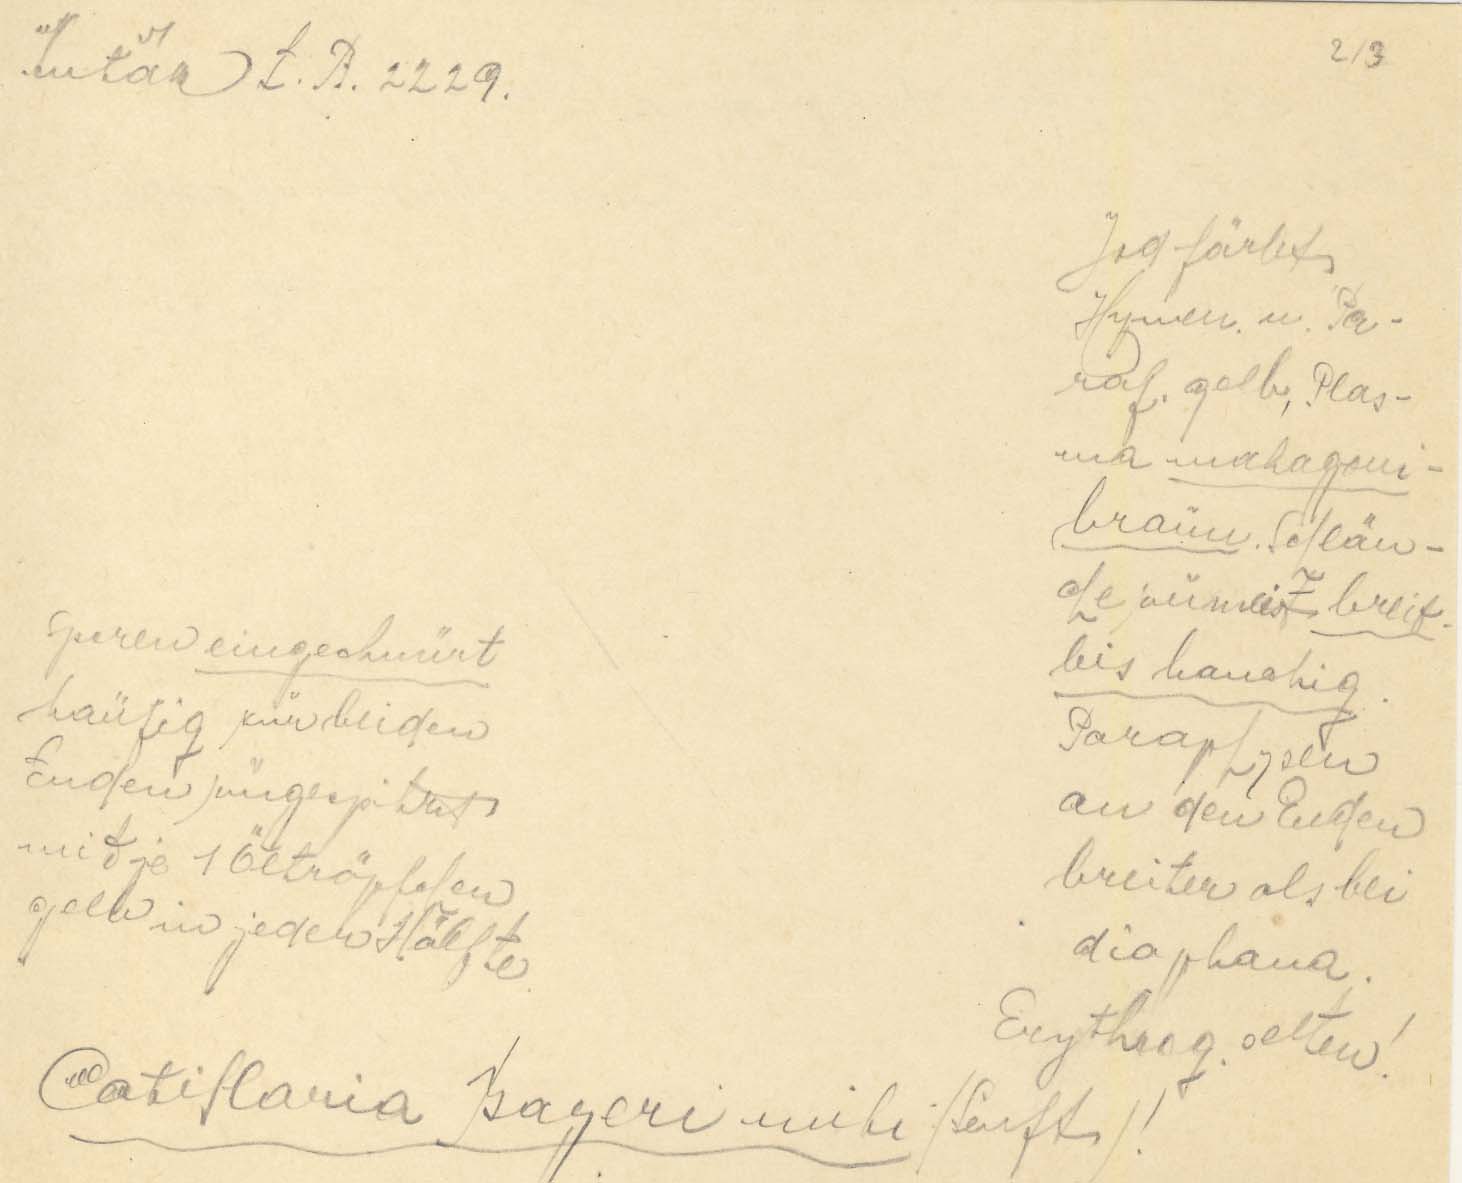 t. B. 2229.
2/3
Jod färbt
Hymen. u. Pa-
raf. gelb, Plas-
ma mahagoni-
braun. Schläu-
che zumeist breit
bis bauchig.
Paraphysen
an den Enden
breiter als bei
diaphana.
Erythrog. selten!
Sporen eingeschnürt
häufig zur beiden
Enden zugespitzt
mit je 1 Öltröpfchen
gelb in jeder Hälfte.
Catillaria Bayeri mihi (Senft)!